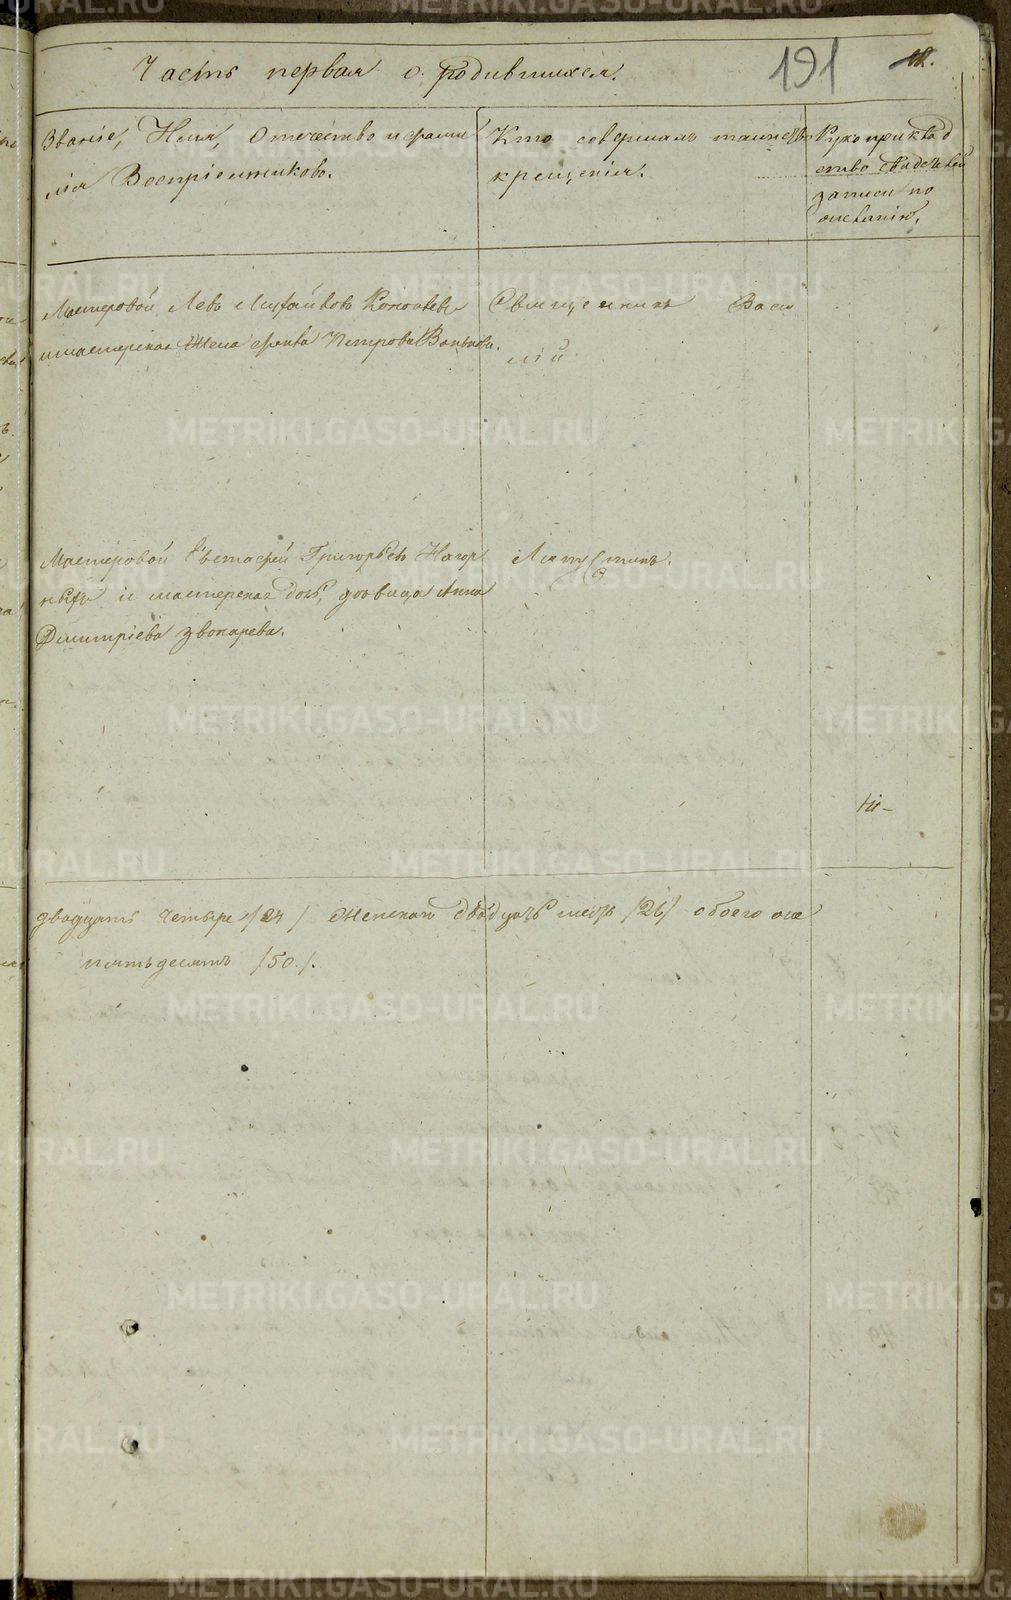 Часть первая о родившихся.
191
Званіе, Имя, Отчество и фами
лія Воспріемниковъ.
Кто совершалъ таинство
крещенія.
Рукоприклад
ство свидѣтелей
записи по
желанію.
Мастеровой Левъ
и мастерская жена Петрова
Священникъ Васи
лій
Мастеровой Евстафей Григорьевъ Нагор
ныхъ и мастерская дочь, дѣвица Анна
Дмитріева Звонарева.
Ляпустинъ.
двадцать четыре /24/ женскаго двадцать шесть /26/ обоего же
пятьдесятъ /50/.
METRIKI.GASO-URAL.RU